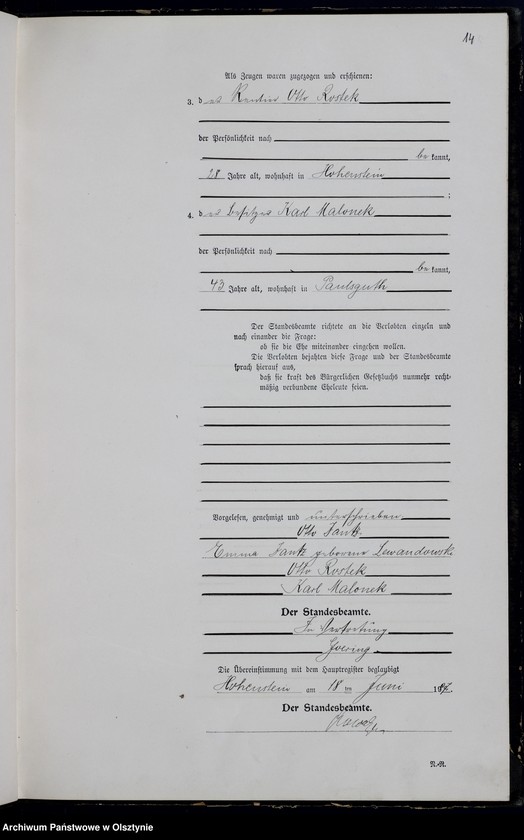 14
Als Zeugen waren zugezogen und erschienen:
3. der Rentier Otto Rostek
der Persönlichkeit nach
bekannt,
28 Jahre alt, wohnhaft in Hohenstein
;
4. der Besitzer Karl Malonek
der Persönlichkeit nach
bekannt,
43 Jahre alt, wohnhaft in Paulsguth
Der Standesbeamte richtete an die Verlobten einzeln und
nach einander die Frage:
ob sie die Ehe miteinander eingehen wollen.
Die Verlobten bejahten diese Frage und der Standesbeamte
sprach hierauf aus,
daß sie kraft des Bürgerlichen Gesetzbuchs nunmehr recht-
mäßig verbundene Eheleute seien.
Vorgelesen, genehmigt und unterschrieben
Otto
Emma geborene Lewandowski
Otto Rostek
Karl Malonek
Der Standesbeamte.
In Vertretung
Die Übereinstimmung mit dem Hauptregister beglaubigt
Hohenstein am 18 ten Juni
Der Standesbeamte.
N.-R.
Archiwum Państwowe w Olsztynie